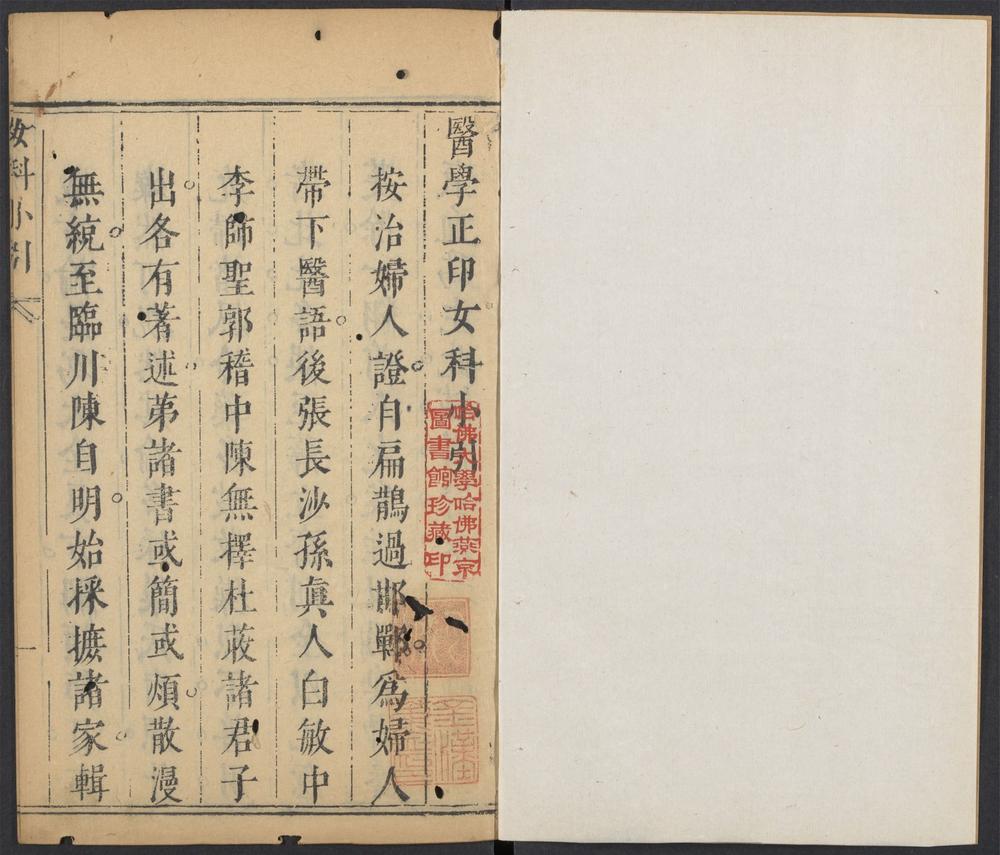 醫學正印女科小引
按治婦人證自扁鵲過邯鄲爲婦人
帶下醫語後張長沙孫真人白敏中
李師聖郭稽中陳無擇杜荍諸君子
出各有著述苐諸書或簡或煩散漫
無統至臨川陳自明始採摭諸家輯
女科小引
哈佛大學哈佛燕京
圖書館珍藏印